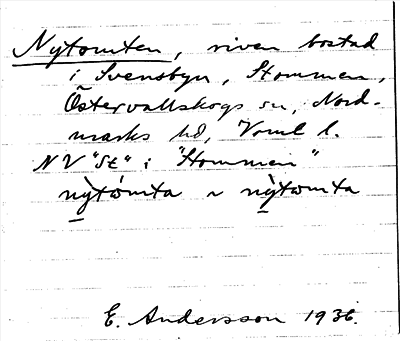 Nytomten, riven bostad
i Svensbyn, Stommen,
Östervallskogs sn, Nord-
marks hd, Vrml l.
NV "St" i "Stommen"
nỳtómta ~ nỳtomta
E. Andersson 1936.